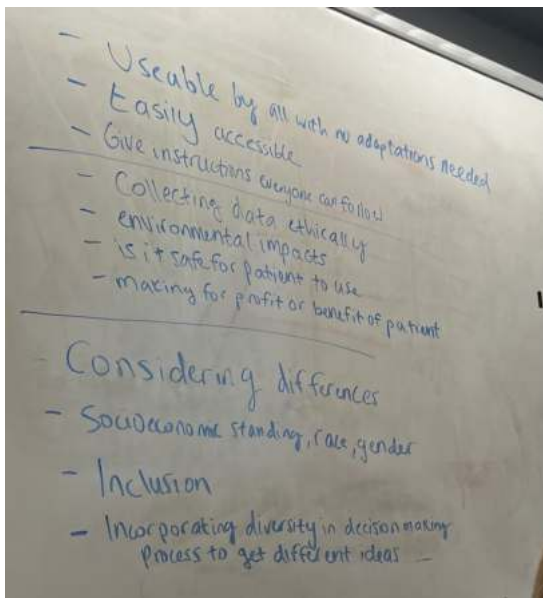 - Useable by all with no adaptations needed
- Easily accessible
- Give instructions everyone can follow
- Collecting data ethically
- environmental impacts
- is it safe for patient to use
- making for profit or benefit of patient
- Considering differences
- Socioeconomic standing, race, gender
- Inclusion
- Incorporating diversity in decison making
process to get different ideas